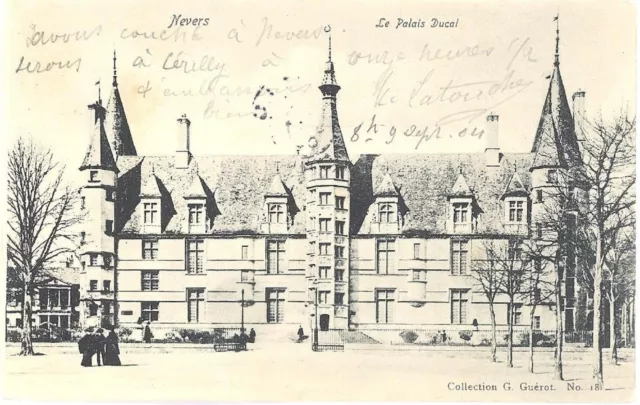 Nevers
Le Palais Ducal
avons couché à Nevers
serons à Cérilly à onze heures
bien
8h 9 Sept. 04
Collection G. Guérot. No. 18